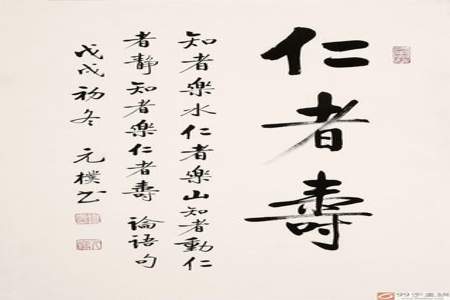 仁者壽
知者樂水仁者樂山知者動仁
者靜知者樂仁者壽 論語句
戊戌初冬 元樸书
99字畫網